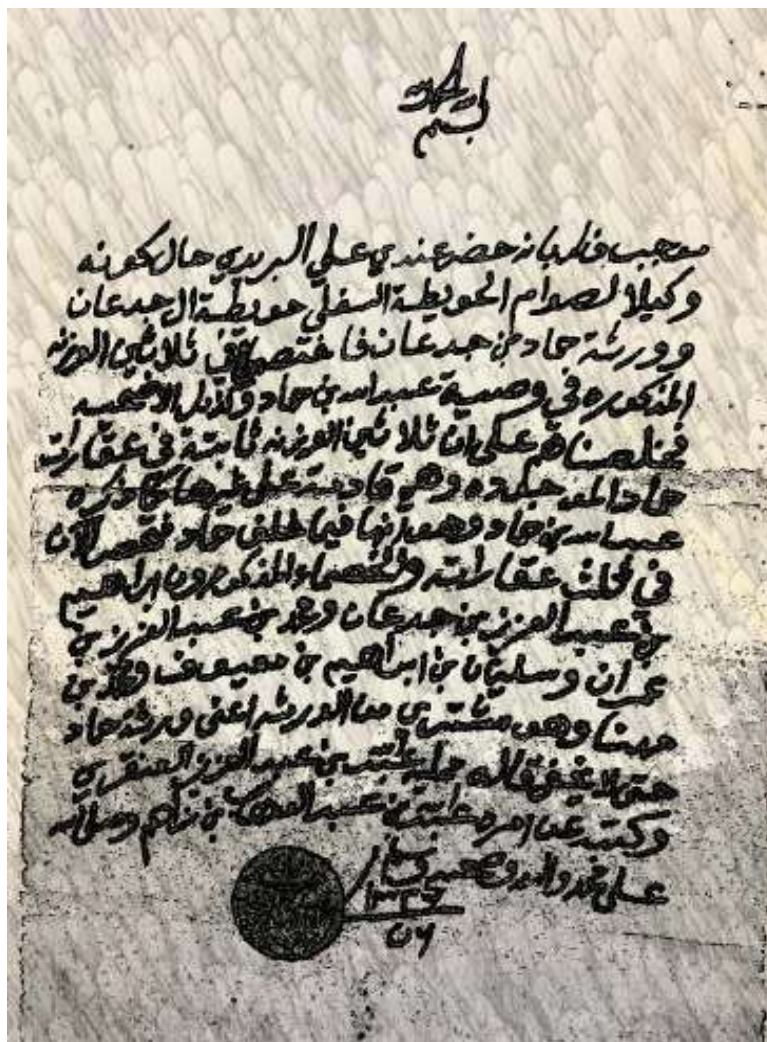 بسم الله
موجب ذلك بانه حضر عندي علي البريدي حال كونه
وكيلا لصوام الحويطة السفلى حويطة ال جدعان
وورثة حماد بن جدعان فاختصموا في ثلاثين الوزنه
المذكوره في وصية عبدالله بن حماد
على ان ثلاثين الوزنه ثابتة في عقارات
حماد وهي قادمة على غيرها كما ذكره
عبدالله بن حماد فيما خلف حماد الان
في ثلث عقاراته والخصماء المذكورون ابراهيم
بن عبد العزيز بن جدعان ومحمد بن عبد العزيز بن
عمران وسليمان بن ابراهيم بن معيوف ومحمد بن
مهنا وهو مشتري من الورثه اعني ورثة حماد
حتى لا يخفى قاله بن عبد العزيز العنقري
وكتبه عن امره بن عبد الوهاب بن زاحم وصلى الله
على محمد واله وصحبه وسلم